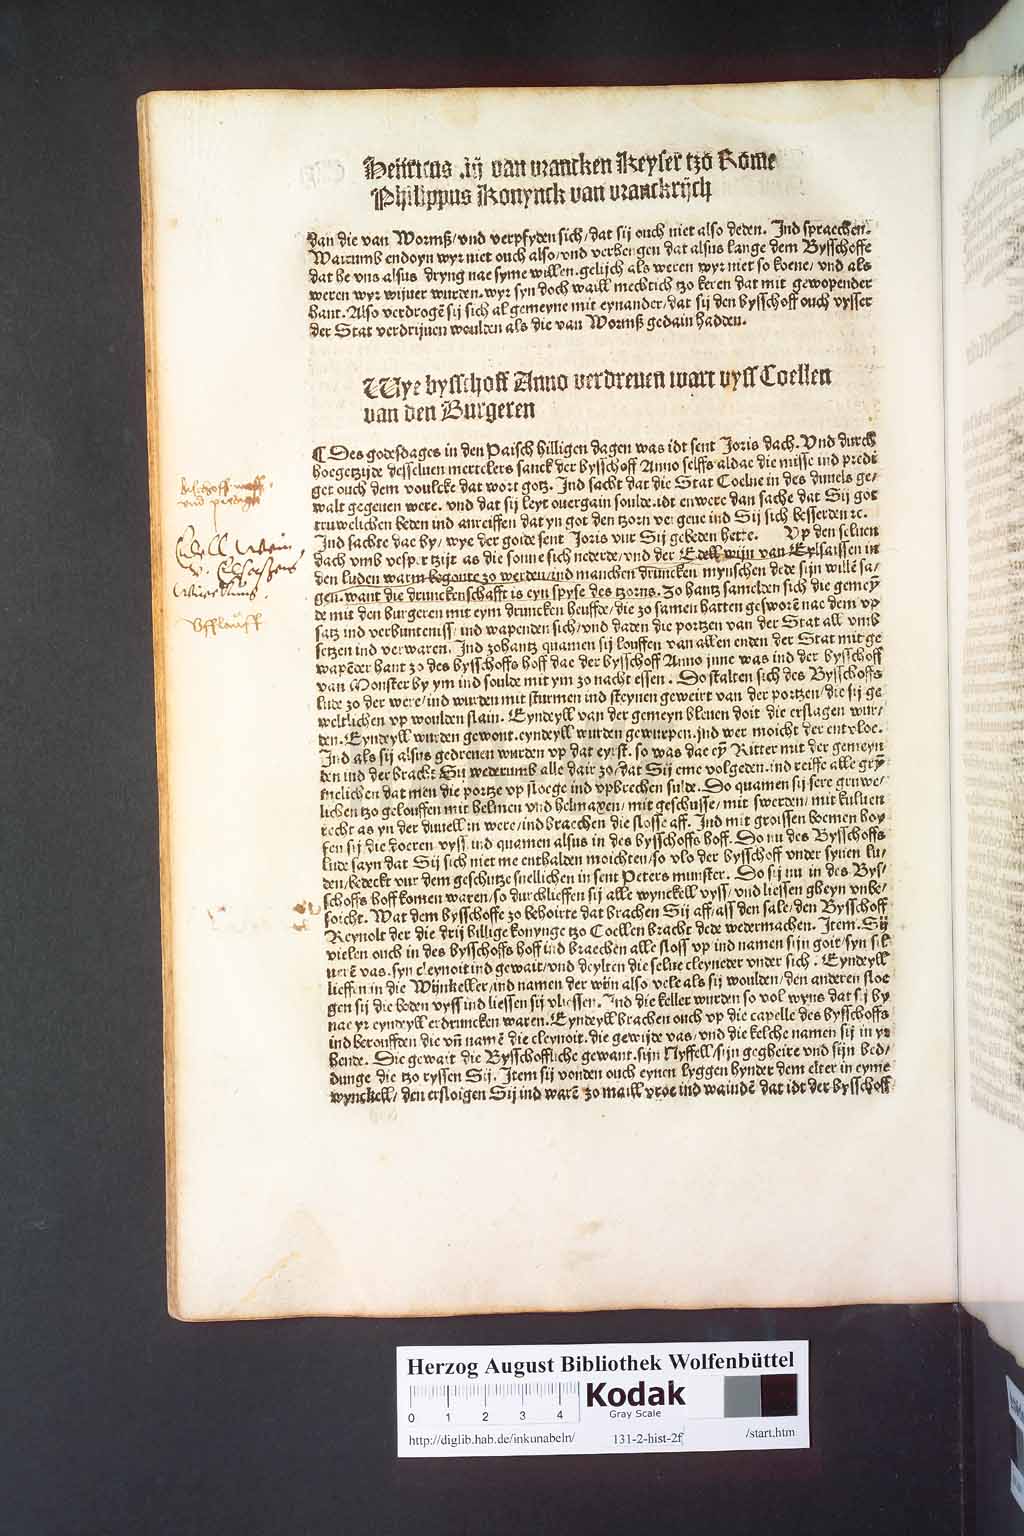 Henricus .iij van vrancken Keyser tzo Rome
Philippus Konynck van vranckrijch
dan die van Wormß/vnd verpfyden sich/dat sij ouch niet also deden. Ind spraechen.
Warumb endoyn wyr niet ouch also/vnd verhengen dat alsus lange dem Bysschoffe
dat he vns alsus dryng nae syme willen.gelijch als weren wyr niet so koene/ vnd als
weren wyr wijuer wurden.wyr syn doch waill mechtich tzo keren dat mit gewopender
hant. Also verdrogē sij sich al gemeyne mit eynander/dat sij den bysschoff ouch vysser
der Stat verdrijuen woulden als die van Wormß gedain hadden.
Wye bysschoff Anno verdreuen wart vyss Coellen
van den Burgeren
Des godesdages in den Paisch hilligen dagen was idt sent Joris dach. Vnd durch
hoegetzijde desseluen mertelers sanck der bysschoff Anno selffs aldae die misse ind predi
get ouch dem voulcke dat wort gotz. Ind sacht dat die Stat Coelne in des duuels ge/
walt gegeuen were. vnd dat sij leyt ouergain soulde.idt enwere dan sache dat Sij got
truwelichen beden ind anreiffen dat yn got den tzorn vergeue ind Sij sich besserden ꝛc.
Ind sachte dae by/ wye der goide sent Joris vur Sij gebeden hette. Vp den seluen
dach vmb vesper tzijt as die sonne sich nederde/vnd der Edell wijn van Eylsaissen in
den luden warm begonte zo werden/ind manchen druncken mynschen dede sijn willē sa/
gen. want die drunckenschafft is eyn spyse des tzorns. Zo hantz samelden sich die gemeȳ
de mit den burgeren mit eym druncken heuffde/die zo samen hatten gesworē nae dem vp
satz ind verbuntemiss/ ind wapenden sich/vnd daden die portzen van der Stat all vmb
setzen ind verwaren. Ind zohantz quamen sij louffen van allen enden der Stat mit ge
wapēder hant zo des bysschoffs hoff dae der bysschoff Anno jnne was ind der bysschoff
van Monster by ym ind soulde mit ym zo nacht essen. Do stalten sich des Bysschoffs
lude zo der were/ind wurden mit sturmen ind steynen geweirt van der portzen/die sij ge
weltlichen vp woulden slain. Eyndeyll van der gemeyn bleuen doit die erslagen wur/
den. Eyndeyll wurden gewont.eyndeyll wurden gewurpen.jnd wer moicht der entvloe.
Ind als sij alsus gedreuen wurden vp dat eyrst. so was dae eȳ Ritter mit der gemeyn
den ind der bracht Sij wederumb alle dair zo/dat Sij eme volgeden.ind reiffe alle grȳ
melichen dat men die portze vp sloege ind vpbrechen sulde. Do quamen sij sere gruwe/
lichen tzo gelouffen mit helmen vnd helmaxen/ mit geschusse/ mit swerden/ mit kuluen
recht as yn der duuell in were/ind braechen die slosse aff. Ind mit groissen boemen hoy
fen sij die doeren vyss ind quamen alsus in des bysschoffs hoff. Do nu des Bysschoffs
lude sayn dat Sij sich niet me enthalden moichten/so vlo der bysschoff vnder synen lu/
den/bedeckt vur dem geschutze snellichen in sent Peters munster. Do sij nu in des Bys/
schoffs hoff komen waren/so durchlieffen sij alle wynckell vyss/ vnd liessen gheyn vnbe/
soicht. Wat dem bysschoffe zo behoirte dat brachen Sij aff/ass den sale/den Bysschoff
Reynolt der die drij hillige konynge tzo Coellen bracht dede wedermachen. Item. Sij
vielen ouch in des bysschoffs hoff ind braechen alle sloss vp ind namen sijn goit/syn sil
uerē vas. syn cleynoit ind gewait/vnd deylten die selue cleyneder vnder sich. Eyndeyll
lieffen in die Wijnkeller/ind namen der wijn also vele als sij woulden/den anderen sloe
gen sij die boden vyss ind liessen sij vliessen. Ind die keller wurden so vol wyns dat sij by
nae yr eyndeyll erdruncken waren. Eyndeyll brachen ouch vp die capelle des bysschoffs
ind berouffden die vñ namē die cleynoit.die gewijde vas/vnd die kelche namen sij in yr
hende. Die gewait die Bysschoffliche gewant.sijn Nyffell/sijn gegheire vnd sijn bed/
dunge die tzo ryssen Sij. Item sij vonden ouch eynen lyggen hynder dem elter in eyme
wynckell/ den ersloigen Sij ind warē zo maill vroe ind waindē dat idt der bysschoff
Bischoff
vnd predigt
Edell Wein
v. Elsassen
Vfflauff
Herzog August Bibliothek Wolfenbüttel
0 1 2 3 4
Kodak
Gray Scale
http://diglib.hab.de/inkunabeln/ 131-2-hist-2f /start.htm